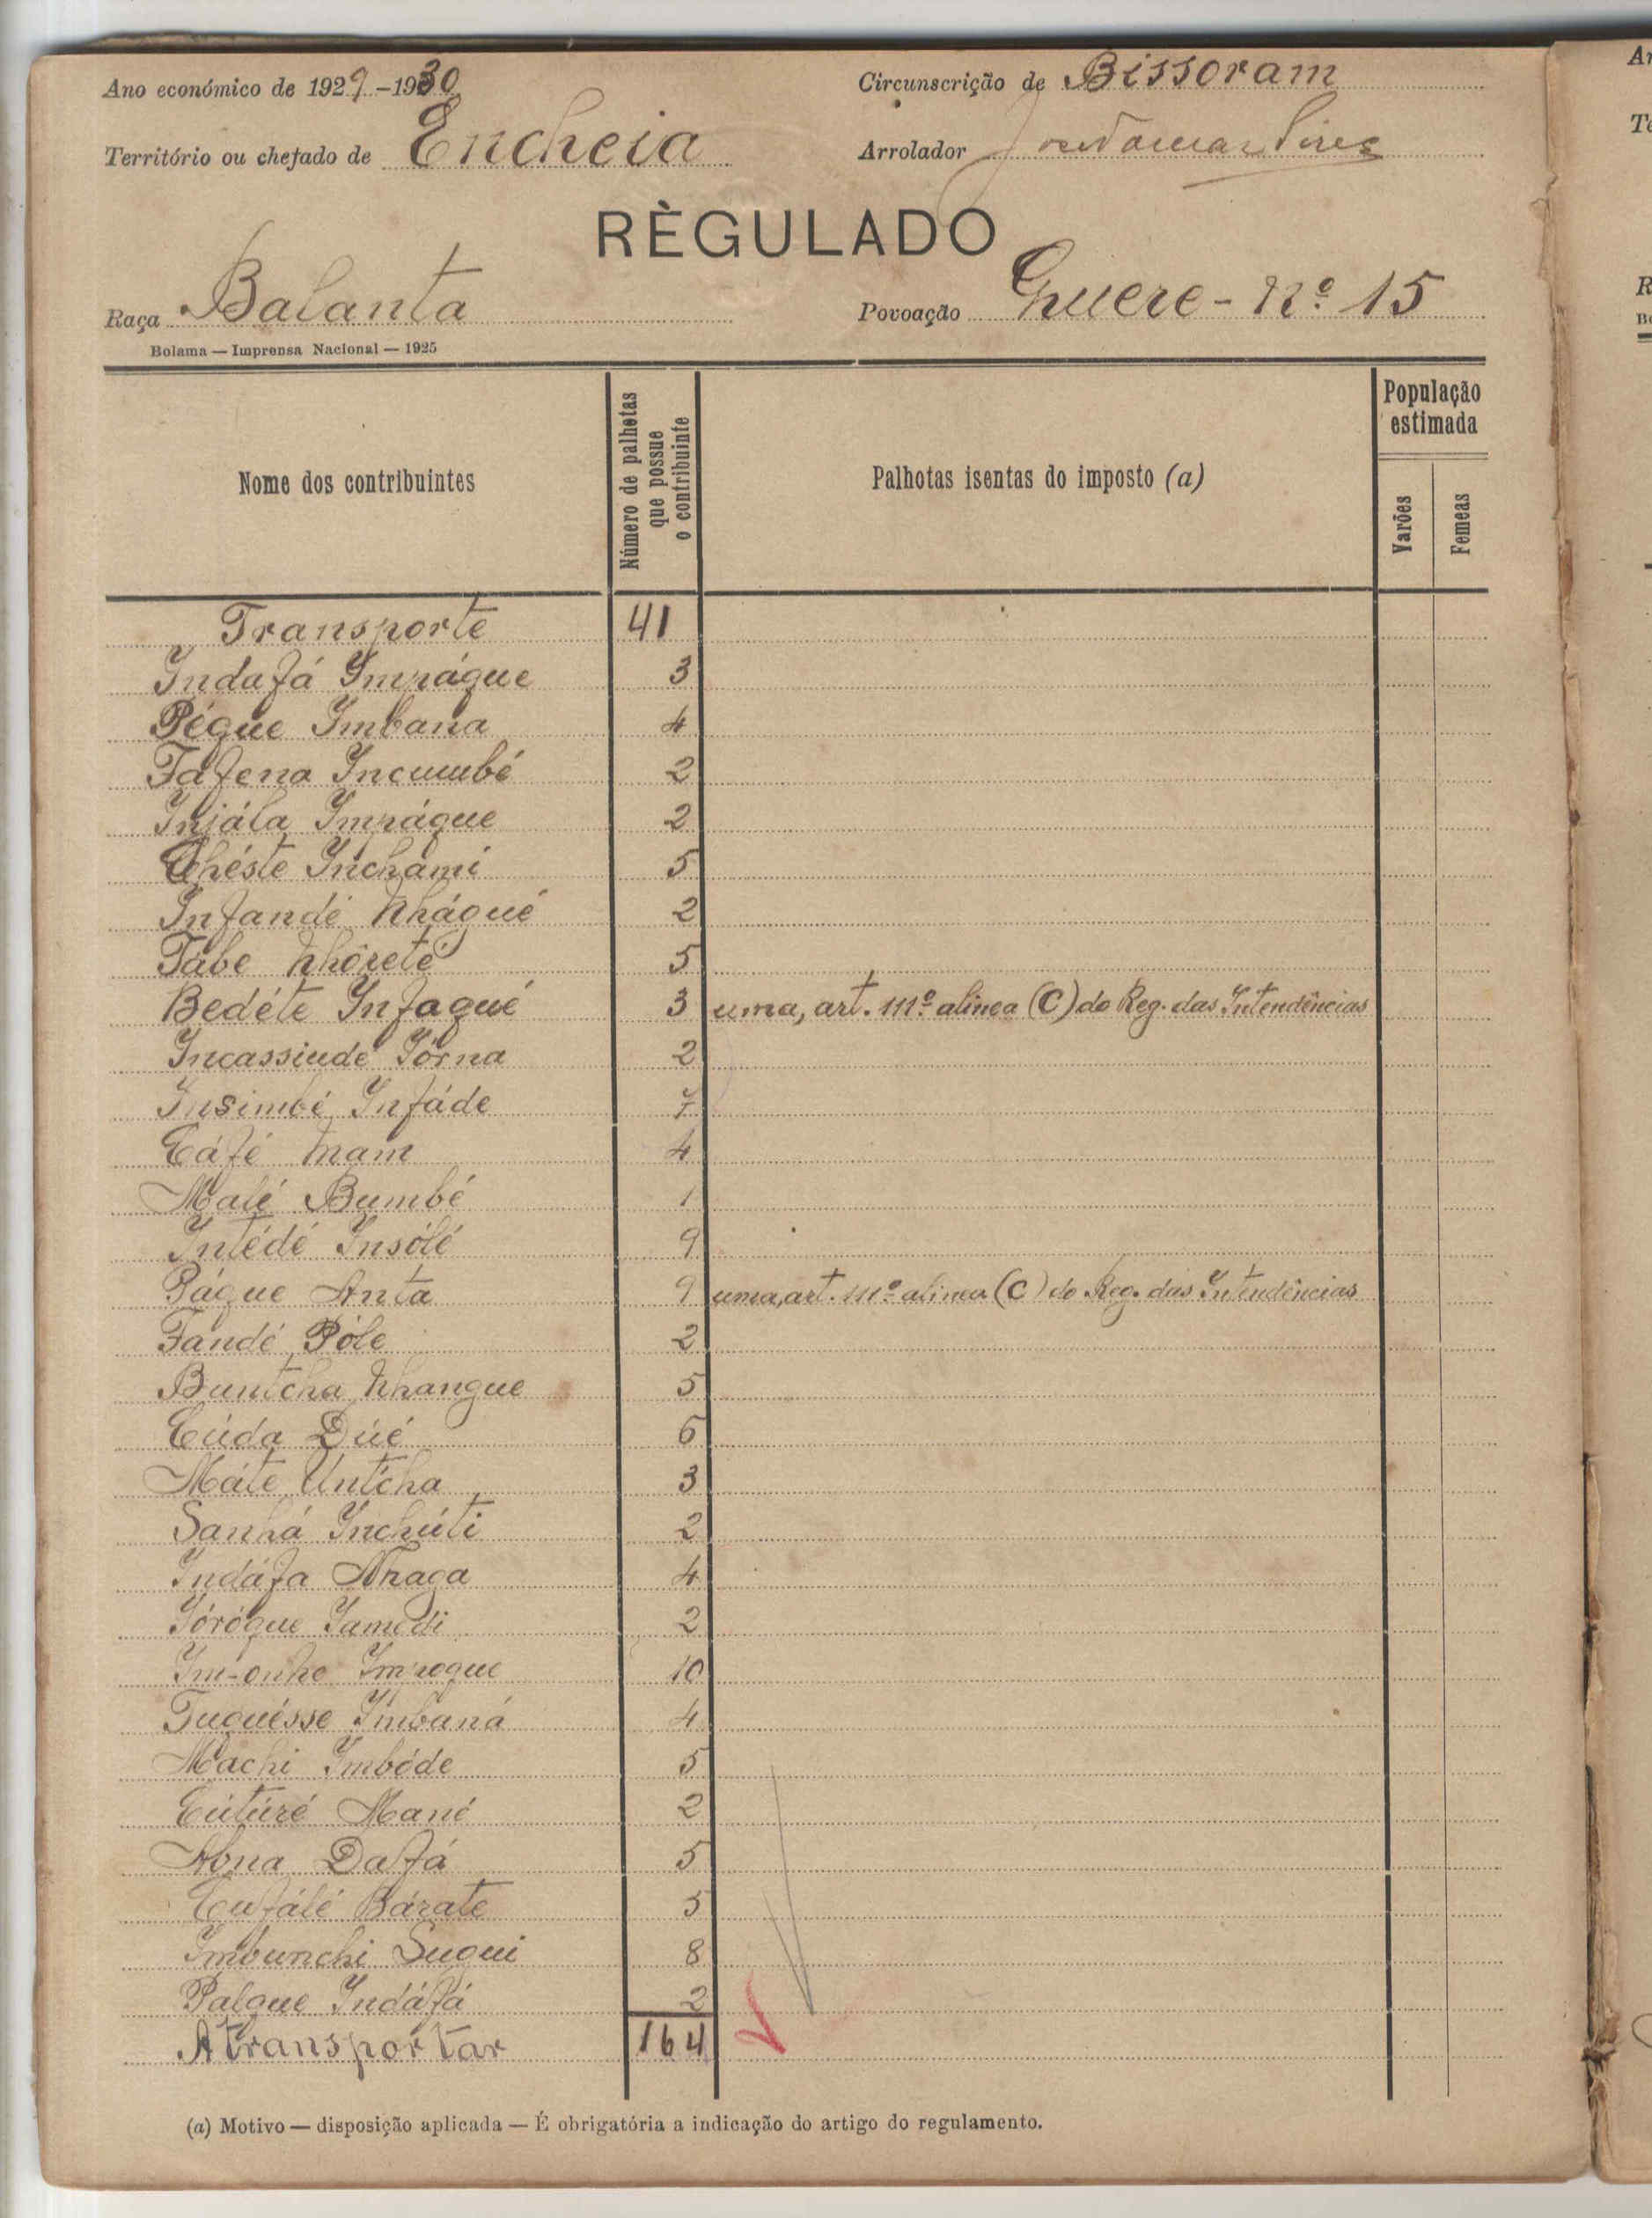 Ano económico de 1929-1930
Circunscrição de Bissoram
Território ou chefado de Encheia
Arrolador
RÈGULADO
Raça Balanta
Povoação Ghuere - Nº 15
Bolama — Imprensa Nacional — 1925
Nome dos contribuintes
Número de palhotas que possue o contribuinte
Palhotas isentas do imposto (a)
População estimada
Varões
Femeas
Transporte 41
Indafá Impágue 3
Pégue Imbana 4
Fafena Incumbé 2
Injála Impágue 2
Chéste Inchami 5
Infandé Nhágué 2
Tábe Nhôreté 5
Bedéte Infagué 3 uma, art. 111º alinea (C) do Reg. das Intendências
Incassiude Iórna 2
Insimbé Infáde 7
Cáfé Nam 4
Malé Bumbé 1
Intédé Insólé 9
Págue Anta 9 uma, art. 111º alinea (C) do Reg. das Intendências
Fandé Póle 2
Buntcha Nhangue 5
Cúda Dúé 6
Máte Untcha 3
Sanhá Inchúti 2
Indáfa Nhaga 4
Iórógue Iamedi 2
Im-onho Impogue 10
Tuguésse Imbaná 4
Machi Imbóde 5
Cúturé Mané 2
Abna Dafá 5
Cufálé Bárate 5
Imbunchi Sugui 8
Palgue Indáfá 2
A transportar 164
(a) Motivo — disposição aplicada — É obrigatória a indicação do artigo do regulamento.